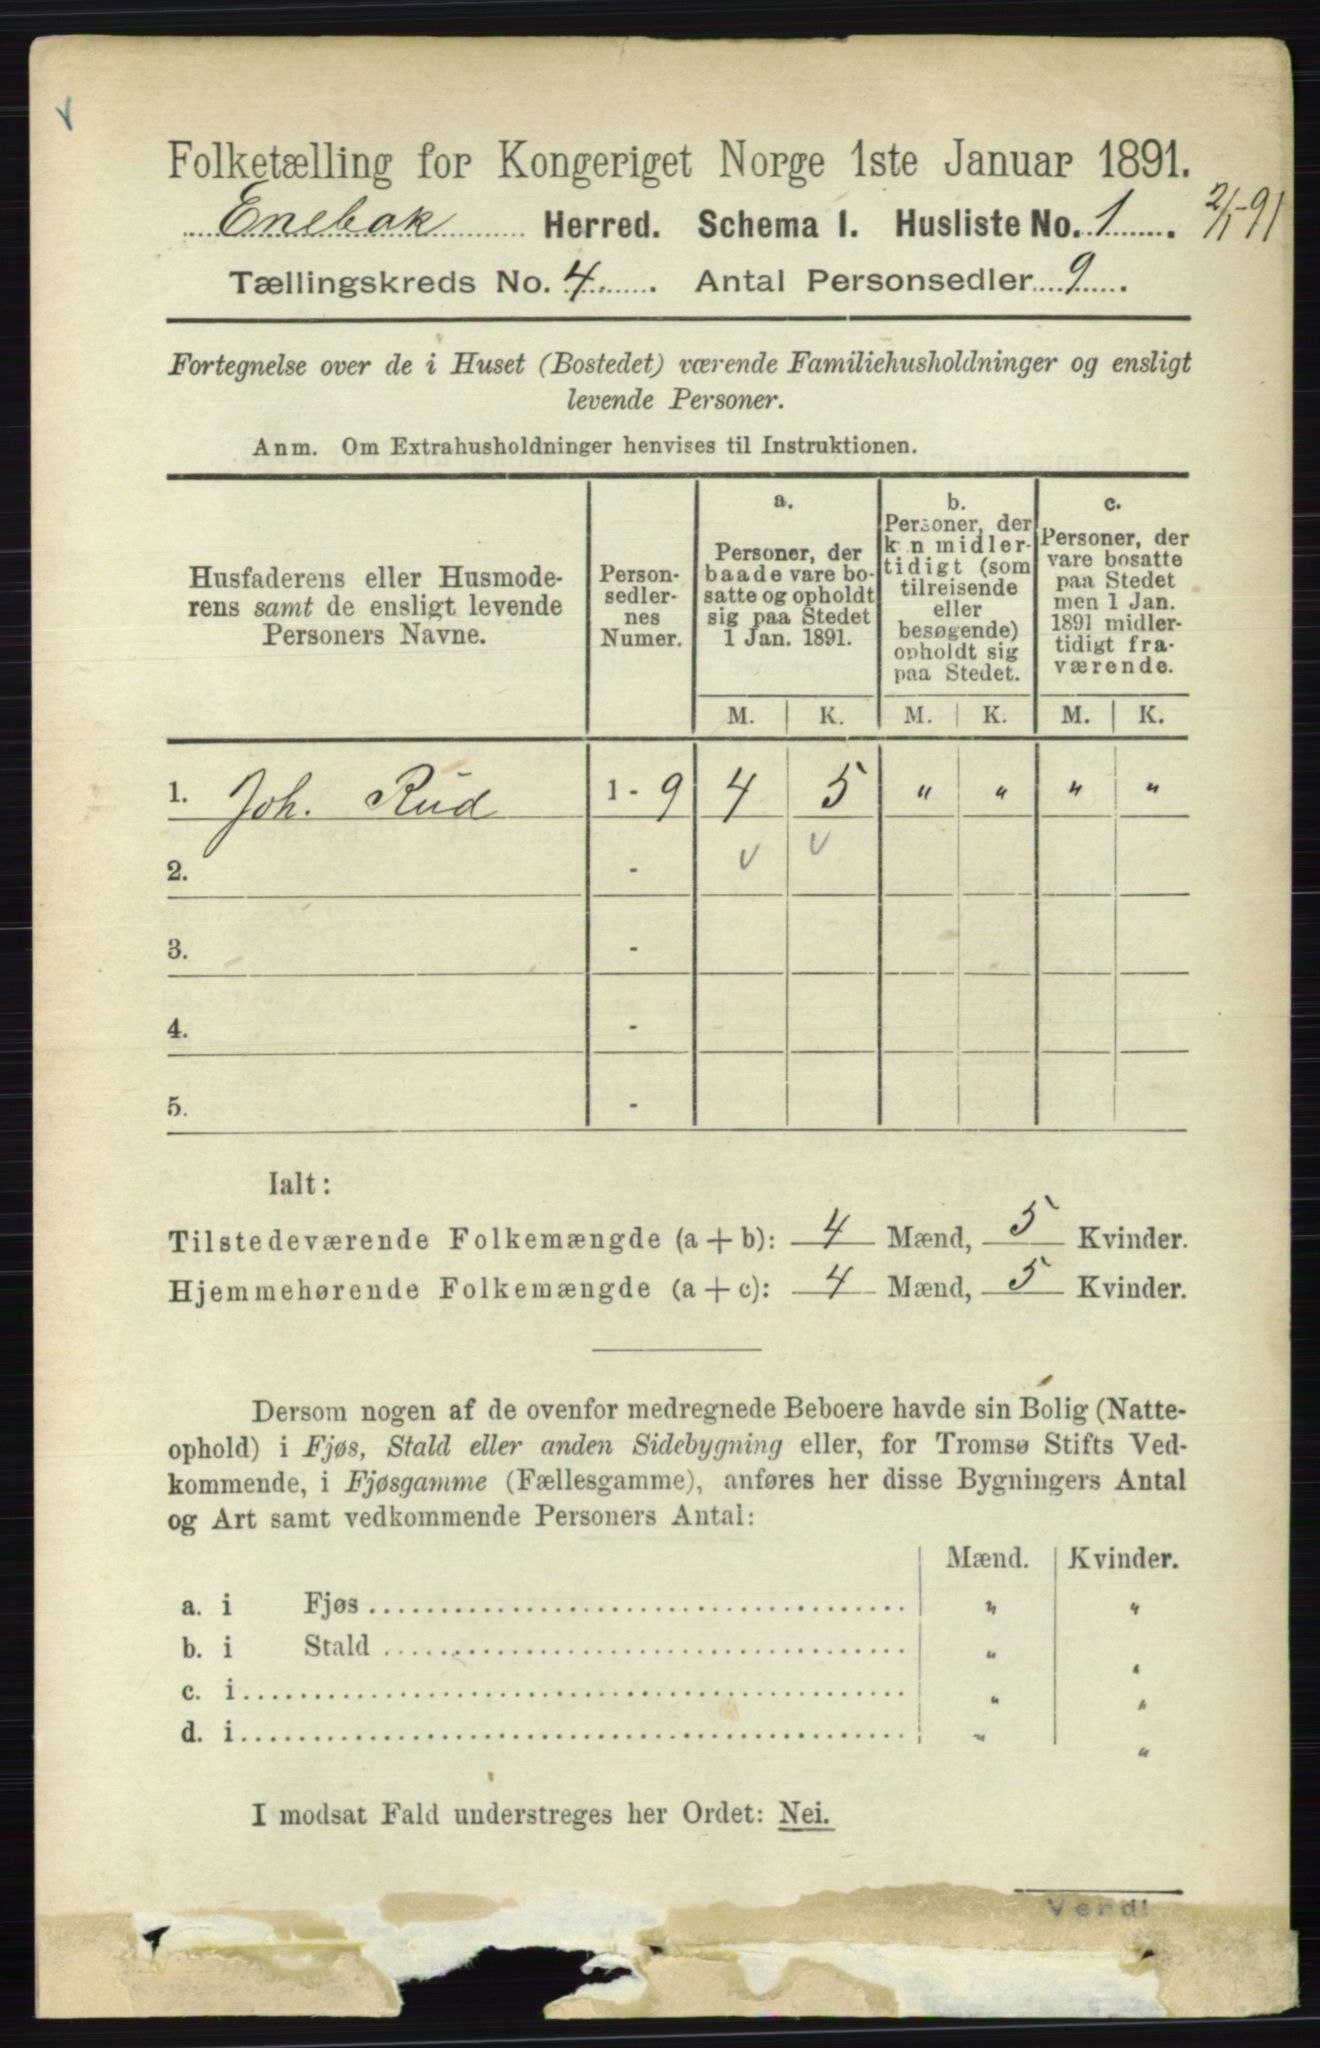 Folketælling for Kongeriget Norge 1ste Januar 1891.
Enebak Herred. Schema I. Husliste No. 1. 2/1-91
Tællingskreds No. 4. Antal Personsedler 9.
Fortegnelse over de i Huset (Bostedet) værende Familiehusholdninger og ensligt
levende Personer.
Anm. Om Extrahusholdninger henvises til Instruktionen.
Husfaderens eller Husmode-
rens samt de ensligt levende
Personers Navne.
Person-
sedler-
nes
Numer.
a.
Personer, der
baade vare bo-
satte og opholdt
sig paa Stedet
1 Jan. 1891.
b.
Personer, der
kun midler-
tidigt (som
tilreisende
eller
besøgende)
opholdt sig
paa Stedet.
c.
Personer, der
vare bosatte
paa Stedet
men 1 Jan.
1891 midler-
tidigt fra-
værende.
M. K. M. K. M. K.
1. Joh. Rud 1 - 9 4 5 " " " "
2. - v v
3. -
4. -
5. -
Ialt:
Tilstedeværende Folkemængde (a + b): 4 Mænd, 5 Kvinder.
Hjemmehørende Folkemængde (a + c): 4 Mænd, 5 Kvinder.
Dersom nogen af de ovenfor medregnede Beboere havde sin Bolig (Natte-
ophold) i Fjøs, Stald eller anden Sidebygning eller, for Tromsø Stifts Ved-
kommende, i Fjøsgamme (Fællesgamme), anføres her disse Bygningers Antal
og Art samt vedkommende Personers Antal:
Mænd. Kvinder.
a. i Fjøs " "
b. i Stald " "
c. i " "
d. i " "
I modsat Fald understreges her Ordet: Nei.
Vend!